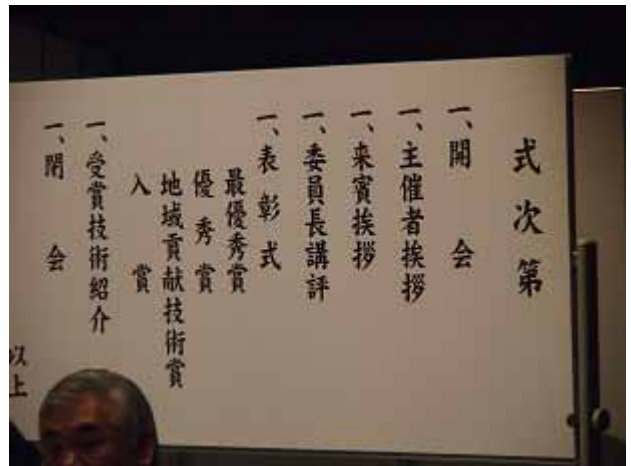 式次第
一、開会
一、主催者挨拶
一、来賓挨拶
一、委員長講評
一、表彰式
最優秀賞
優秀賞
地域貢献技術賞
入賞
一、受賞技術紹介
一、閉会
以上